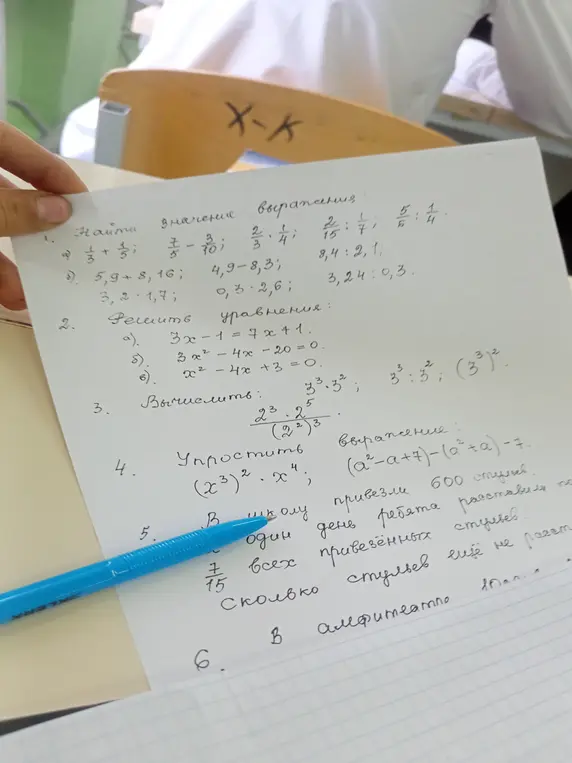 X-K
1. Найти значение выражения:
а) 1/3 + 1/5; 7/5 - 3/10; 2/3 · 1/4; 2/15 : 1/7; 5/5 : 1/4.
б). 5,9+8,16; 4,9-8,3; 8,4:2,1.
3,2·1,7; 0,3·2,6; 3,24:0,3.
2. Решить уравнения:
а). 3x-1=7x+1.
б). 3x²-4x-20=0.
в). x²-4x+3=0.
3. Вычислить: 3³·3²; 3³:3²; (3³)².
2³·2⁵/(2²)³.
4. Упростить выражение:
(x³)²·x⁴; (a²-a+7)-(a²+a)-7.
5. В школу привезли 600 стульев.
один день ребята расставили
7/15 всех привезённых стульев.
Сколько стульев ещё не
6. В